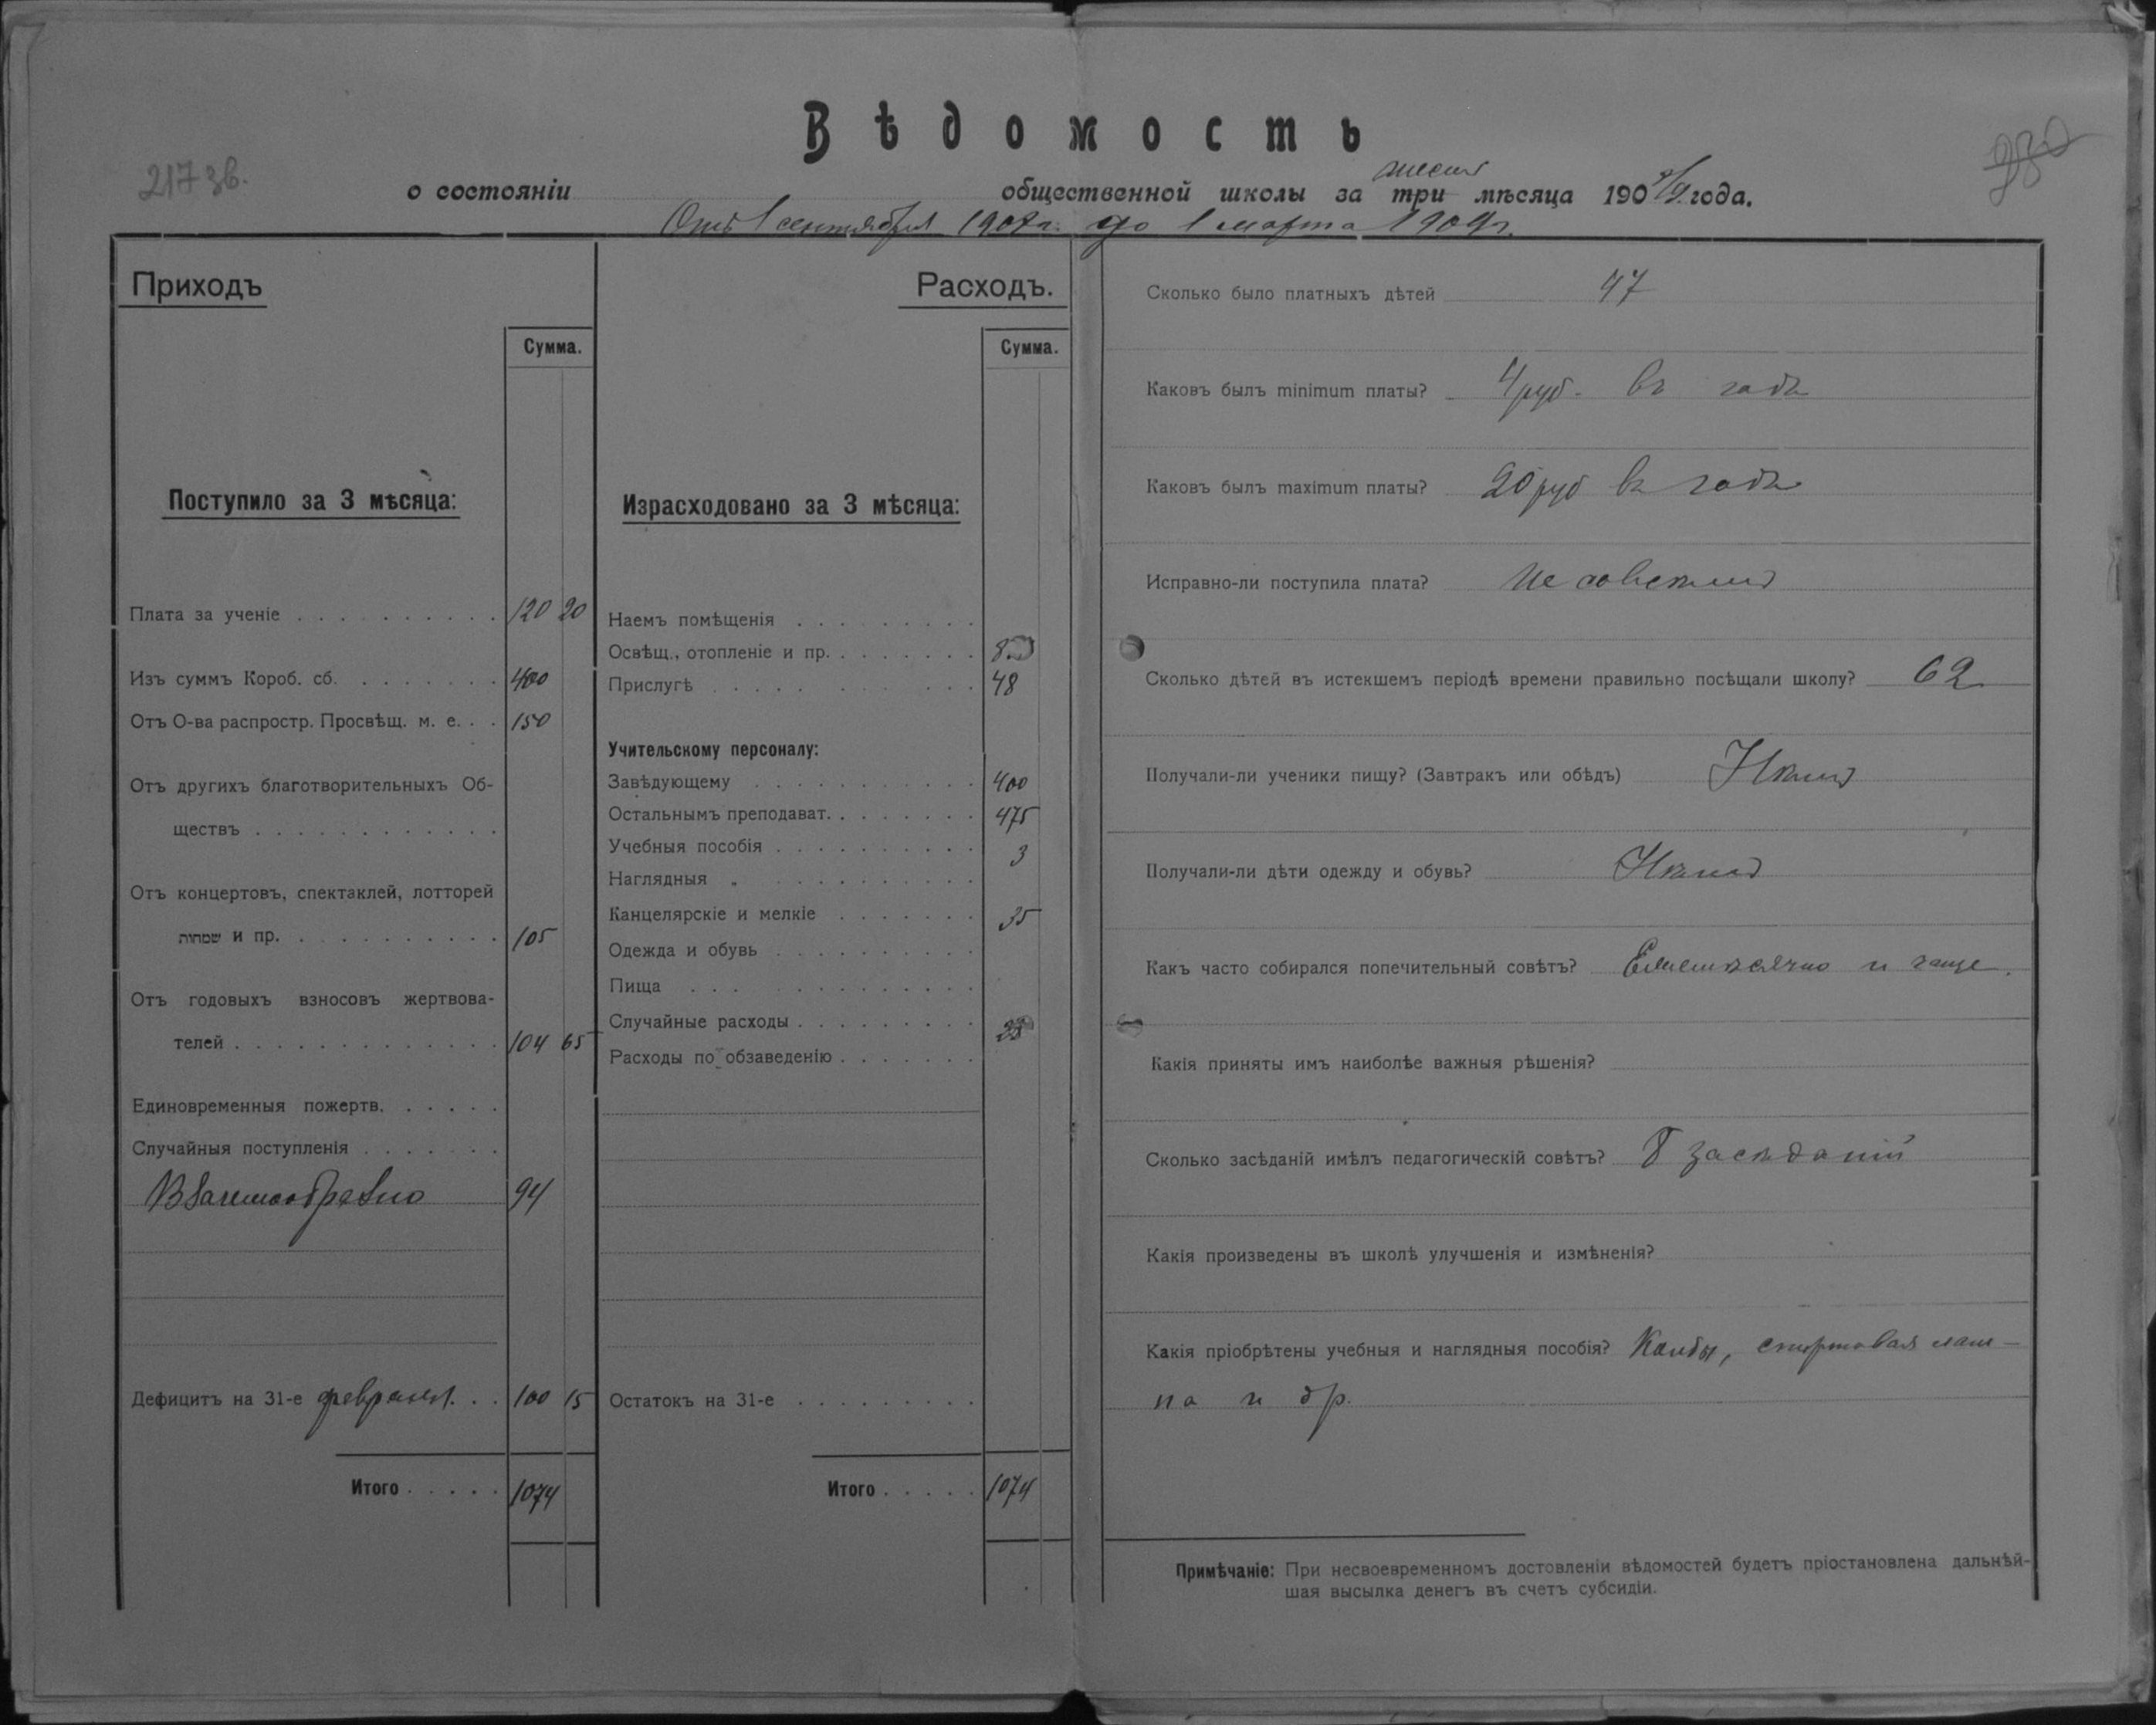 Вѣдомость
217 зв.
о состоянiи общественной школы за три мѣсяца 1908/9 года.
шесть
Отъ 1 сентября 1908 г. до 1 марта 1909 г.
Приходъ
Сумма.
Поступило за 3 мѣсяца:
Плата за ученiе . . . . . . . . . . 120 20
Изъ суммъ Короб. сб. . . . . . . . 400
Отъ О-ва распростр. Просвѣщ. м. е. . . 150
Отъ другихъ благотворительныхъ Об-
ществъ . . . . . . . . . . . .
Отъ концертовъ, спектаклей, лотторей
שמחות и пр. . . . . . . . . . . 105
Отъ годовыхъ взносовъ жертвова-
телей . . . . . . . . . . . . . 104 65
Единовременныя пожертв. . . . . .
Случайныя поступленiя . . . . . . .
Взаимообразно 94
Дефицитъ на 31-е февраля . . 100 15
Итого . . . . . 1074
Расходъ.
Сумма.
Израсходовано за 3 мѣсяца:
Наемъ помѣщенiя . . . . . . . . .
Освѣщ., отопленiе и пр. . . . . . . .
Прислугѣ . . . . . . . . . . . . 48
Учительскому персоналу:
Завѣдующему . . . . . . . . . . . 400
Остальнымъ преподават. . . . . . . . 475
Учебныя пособiя . . . . . . . . . . 3
Наглядныя „ . . . . . . . . . .
Канцелярскiе и мелкiе . . . . . . . 35
Одежда и обувь . . . . . . . . . .
Пища . . . . . . . . . . . . .
Случайные расходы . . . . . . . . .
Расходы по обзаведенiю . . . . . . .
Остатокъ на 31-е . . . . . . . . .
Итого . . . . . 1074
Сколько было платныхъ дѣтей 47
Каковъ былъ minimum платы? 4 руб. въ годъ
Каковъ былъ maximum платы? 20 руб въ годъ
Исправно-ли поступила плата? Не совсѣмъ
Сколько дѣтей въ истекшемъ перiодѣ времени правильно посѣщали школу? 62
Получали-ли ученики пищу? (Завтракъ или обѣдъ) Нѣтъ
Получали-ли дѣти одежду и обувь? Нѣтъ
Какъ часто собирался попечительный совѣтъ? Ежемѣсячно и чаще.
Какiя приняты имъ наиболѣе важныя рѣшенiя?
Сколько засѣданiй имѣлъ педагогическiй совѣтъ? 8 засѣданiй
Какiя произведены въ школѣ улучшенiя и измѣненiя?
Какiя прiобрѣтены учебныя и наглядныя пособiя? Колбы, спиртовая лам-
па и др.
Примѣчанiе: При несвоевременномъ достовленiи вѣдомостей будетъ прiостановлена дальнѣй-
шая высылка денегъ въ счетъ субсидiи.